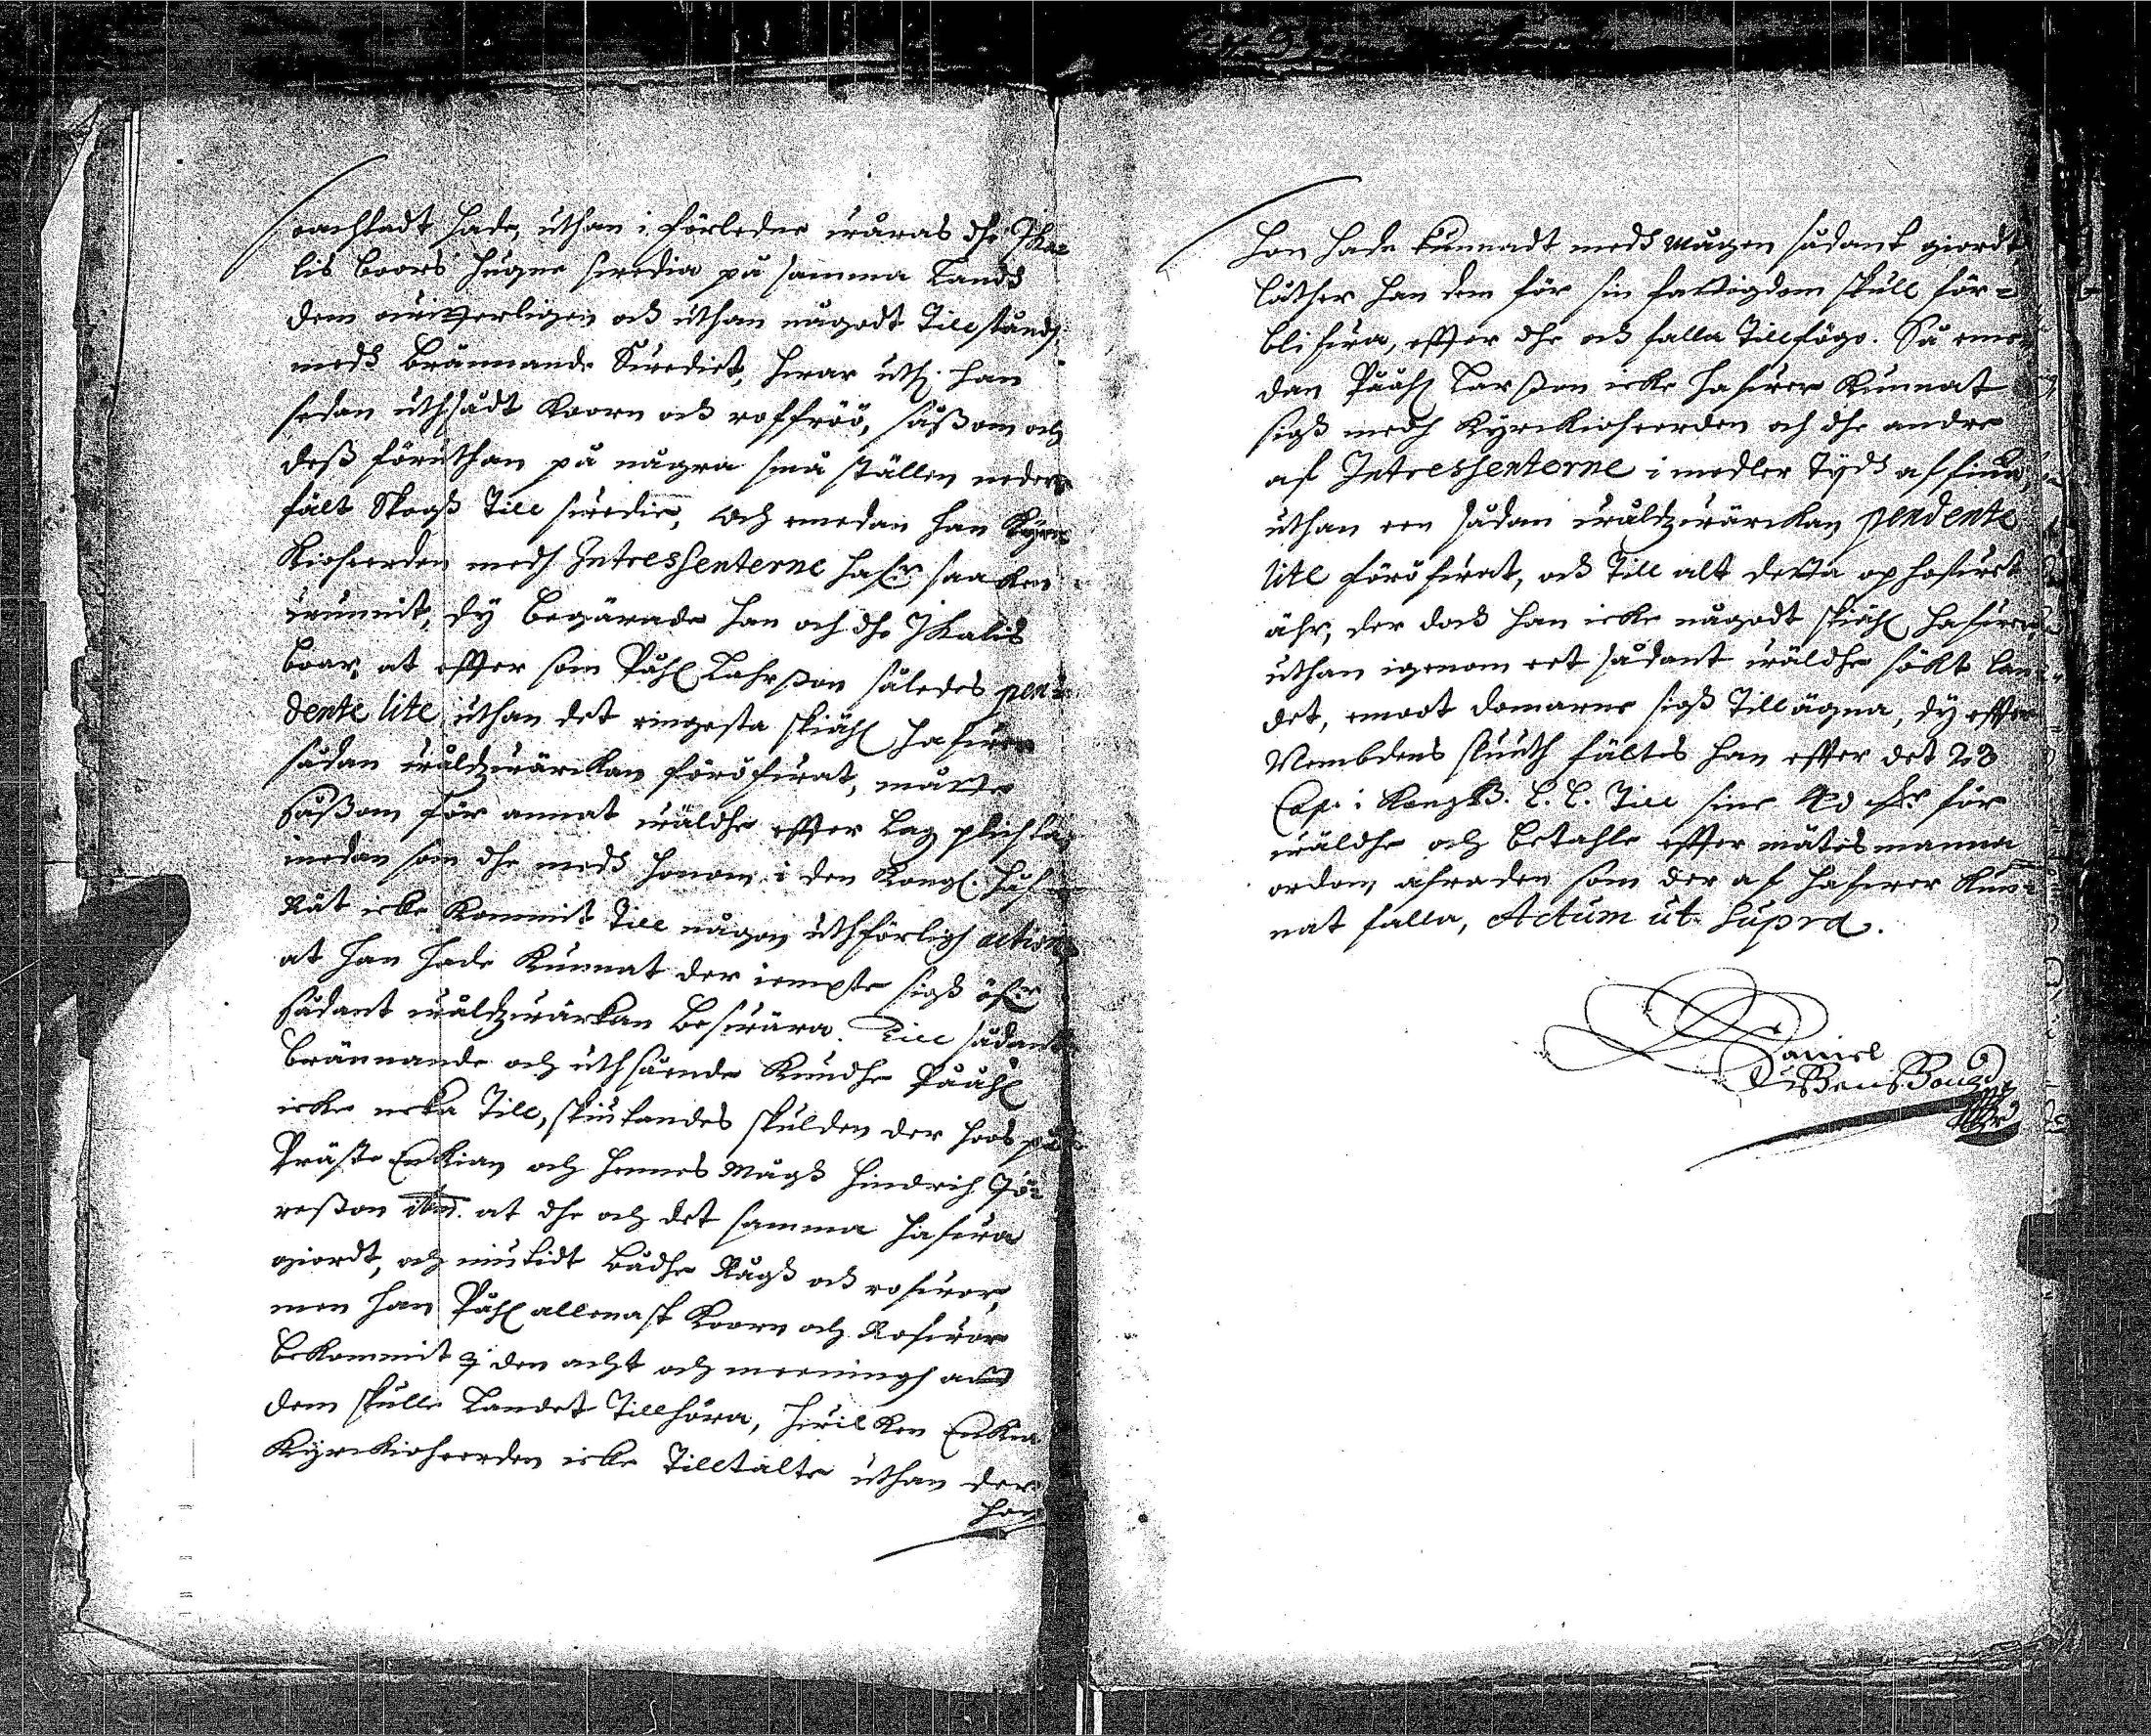 achtadt hade, uthan i förleden wåras dhe Ikalis
lis boors hugne swedia på samma Landh
dem owitterligen och uthan någodt Tillstånd,
medh brännande Swediet, hwar uthi han
sedan uthsådt Koorn och roffröö, såssom och
dess föruthan på några små ställen neder
fält Skogh Till swedie, Och emedan han Kyrc
Kioherden medh Intressenterne hafr saaken
wunnit, dy begärade han och dhe Ikalis
boar, at effter som Påhl Lahrsson således pen
dente lite, uthan det ringesta skiähl hafwer
sådan wåldzwärckan föröfwat, måtte
såssom för annat wåldhe effter Lag plichta,
medan som dhe medh honom i den Kongl. Håf
Rät icke Kommit Till någon uthförligh action
at han hade Kunnat der iempte sigh öfr
sådant wåldzwärkan beswära. Till sådant
brännande och uthsående Kundhe Pååhl
icke neka Till, skiutandes skulden der hoos på
Präste Enkian och hennes Mågh Hindrich Jö
resson ibid. at dhe och det samma hafwa
giordt, och niutidt bådhe Rågh och rofwor,
men han Påhl allenast Koorn och Rofwor
bekommit i den acht och meeningh att
dem skulle Landet Tillhöra, hwilken Enkia
Kyrckioheerden icke Tilltalte uthan der
hon
hon hade kunnadt medh Mågen sådant giordt
låther han dem för sin fattigdom skull för=
blifwa, effter dhe och falla Tillfögo. Så eme
dan Pååhl Larsson icke hafwer Kunnat
sigh medh Kyrckioherden och dhe andre
af Intressenterne i medler Tydh affinna,
uthan een sådan wåldzwärckan pendente
lite föröfwat, och Till alt detta ophofwet
ähr, der doch han icke någodt skiähl hafwer,
uthan igenom eet sådant wåldhe sökt lan
det, emoot domarne sigh Tillägna, dy effter
Nembdens sluuth fältes han effter det 28
Cap. i KongzB. L. L. Till sine 40 mkr för
wåldhe och betahle effter mätesmanna
ordom, afraden som der af hafwer Kun
nat falla, Actum ut Supra.
Daniel